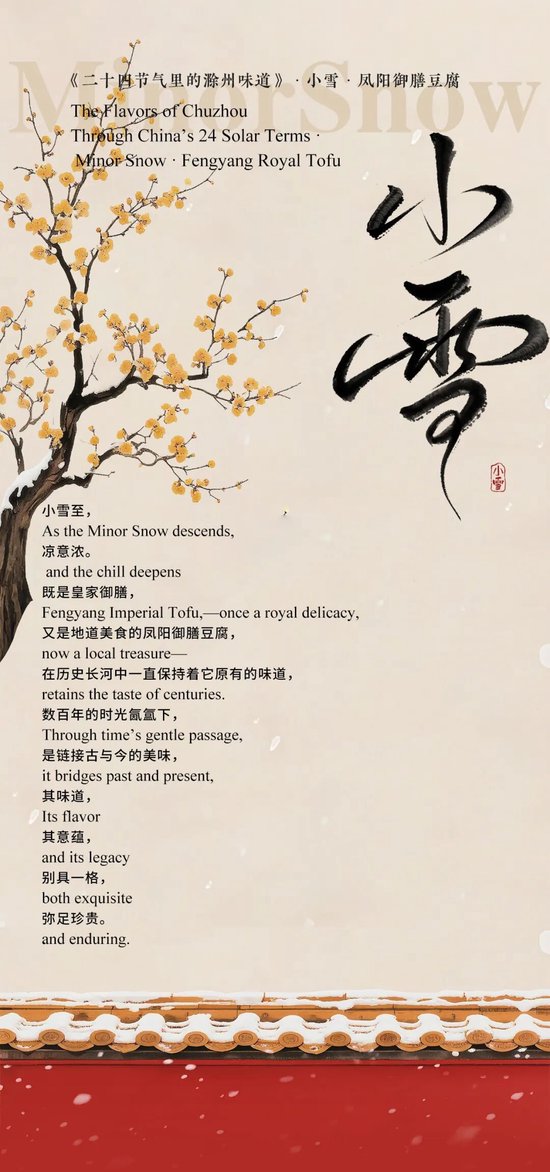 Minor Snow
《二十四节气里的滁州味道》·小雪·凤阳御膳豆腐
The Flavors of Chuzhou
Through China's 24 Solar Terms ·
Minor Snow · Fengyang Royal Tofu
小雪
小雪
小雪至，
As the Minor Snow descends,
凉意浓。
and the chill deepens
既是皇家御膳，
Fengyang Imperial Tofu,—once a royal delicacy,
又是地道美食的凤阳御膳豆腐，
now a local treasure—
在历史长河中一直保持着它原有的味道，
retains the taste of centuries.
数百年的时光氤氲下，
Through time's gentle passage,
是链接古与今的美味，
it bridges past and present,
其味道，
Its flavor
其意蕴，
and its legacy
别具一格，
both exquisite
弥足珍贵。
and enduring.